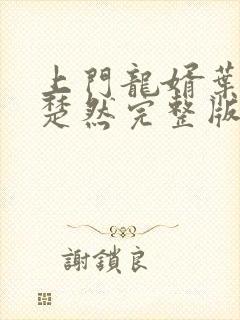 上門龍婿葉
楚然完整版
謝鎖良